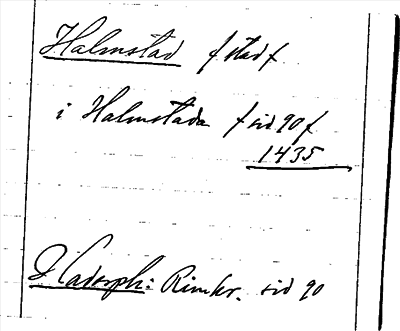 Halmstad / stad /
i Halmstada / sid 90 /
1435
J. Hadorph: Rimkr. sid 90